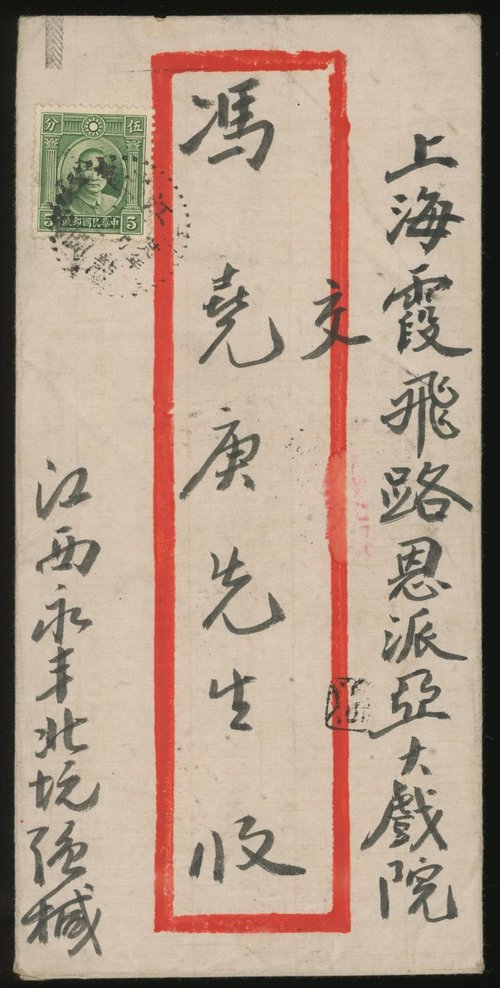 上海霞飛路恩派亞大戲院
交
馮堯庚先生收
江西永丰北坑強械
伍分
5 5
政郵國民華中
江